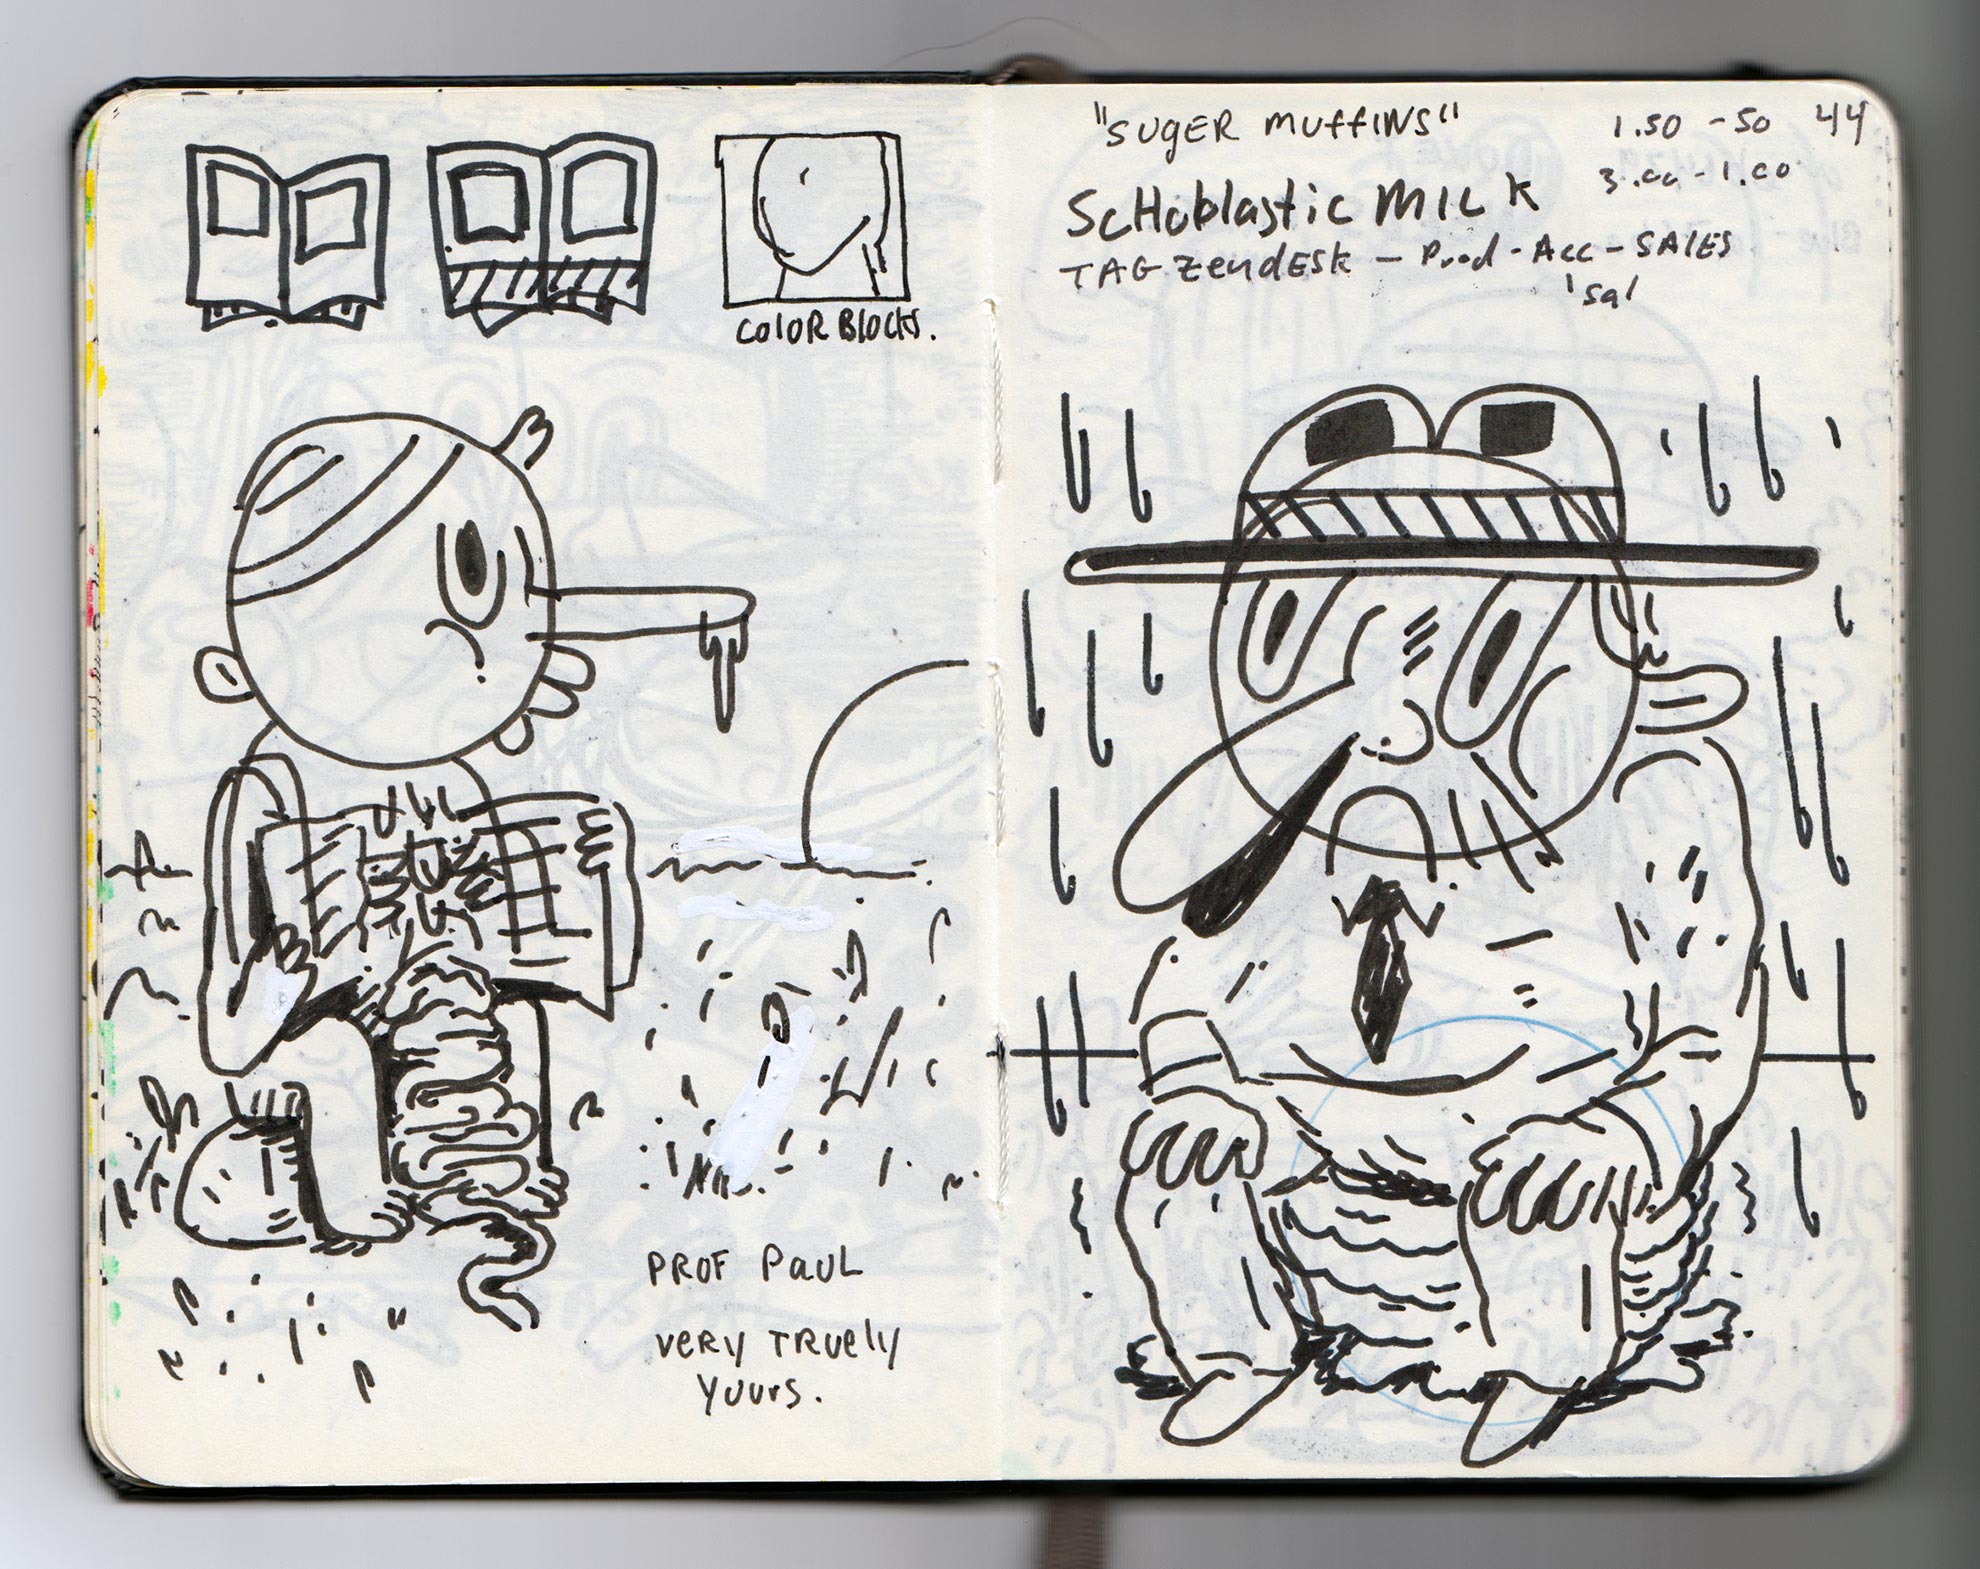 COLOR BLOCKS.
PROF PAUL
VERY TRUELY
YOURS.
"SUGER MUFFINS" 1.50 - 50 44
3.00 - 1.00
SCHOBLASTIC MILK
TAG ZENDESK - Prod - Acc - SALES
'sq'